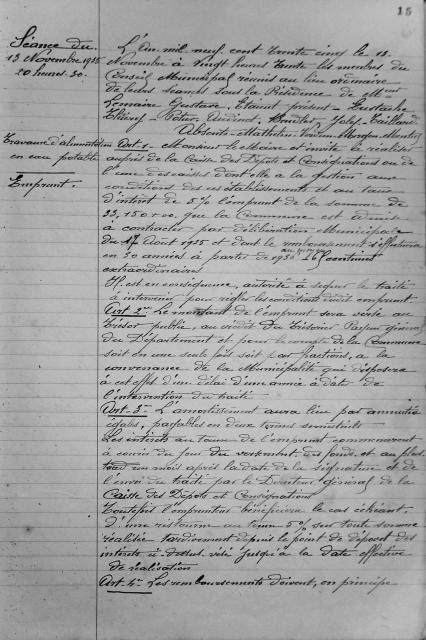 15
Séance du
13 Novembre 1935
20 heures 30.
L'An mil neuf cent trente cinq le 13
Novembre à vingt heures trente les membres du
Conseil Municipal réunis au lieu ordinaire
de leurs séances sous la Présidence de Mr
Lemaire Gustave. Étaient présent = Eustache
Absents = Mathieu
Travaux d'alimentation
en eau potable
Emprunt.
Art 1. - Monsieur le Maire est invité à réaliser
auprès de la Caisse des Dépôts et Consignations ou de
l'une des caisses dont elle a la gestion aux
conditions de ces établissements et au taux
d'intérêt de 5% l'emprunt de la somme de
33,150 que la Commune est admise
à contracter par délibération Municipale
du 17 Août 1935 et dont le remboursement s'effectuera
en 30 années à partir de 1936 centimes
extraordinaires
Il est en conséquence, autorisé à signer le traité
à intervenir pour régler les conditions dudit emprunt
Art 2. Le montant de l'emprunt sera versé au
Trésor public, au crédit du Trésorier Payeur général
du Département et pour le compte de la Commune
soit en une seule fois soit par fractions, à la
convenance de la Municipalité qui disposera
à cet effet d'un délai d'une année à date de
l'intervention du traité
Art 3. - L'amortissement aura lieu par annuités
égales, payables en deux termes semestriels
Les intérêts au taux de l'emprunt commenceront
à courir du jour du versement des fonds et au plus
tard un mois après la date de la signature et de
l'envoi du traité par le Directeur général de la
Caisse des Dépôts et Consignations
Toutefois l'emprunteur bénéficiera le cas échéant
d'une ristourne au taux 5% sur toute somme
réalisée tardivement depuis le point de départ des
intérêts ci dessus visé jusqu'à la date effective
de réalisation
Art 4. Les remboursements doivent, en principe